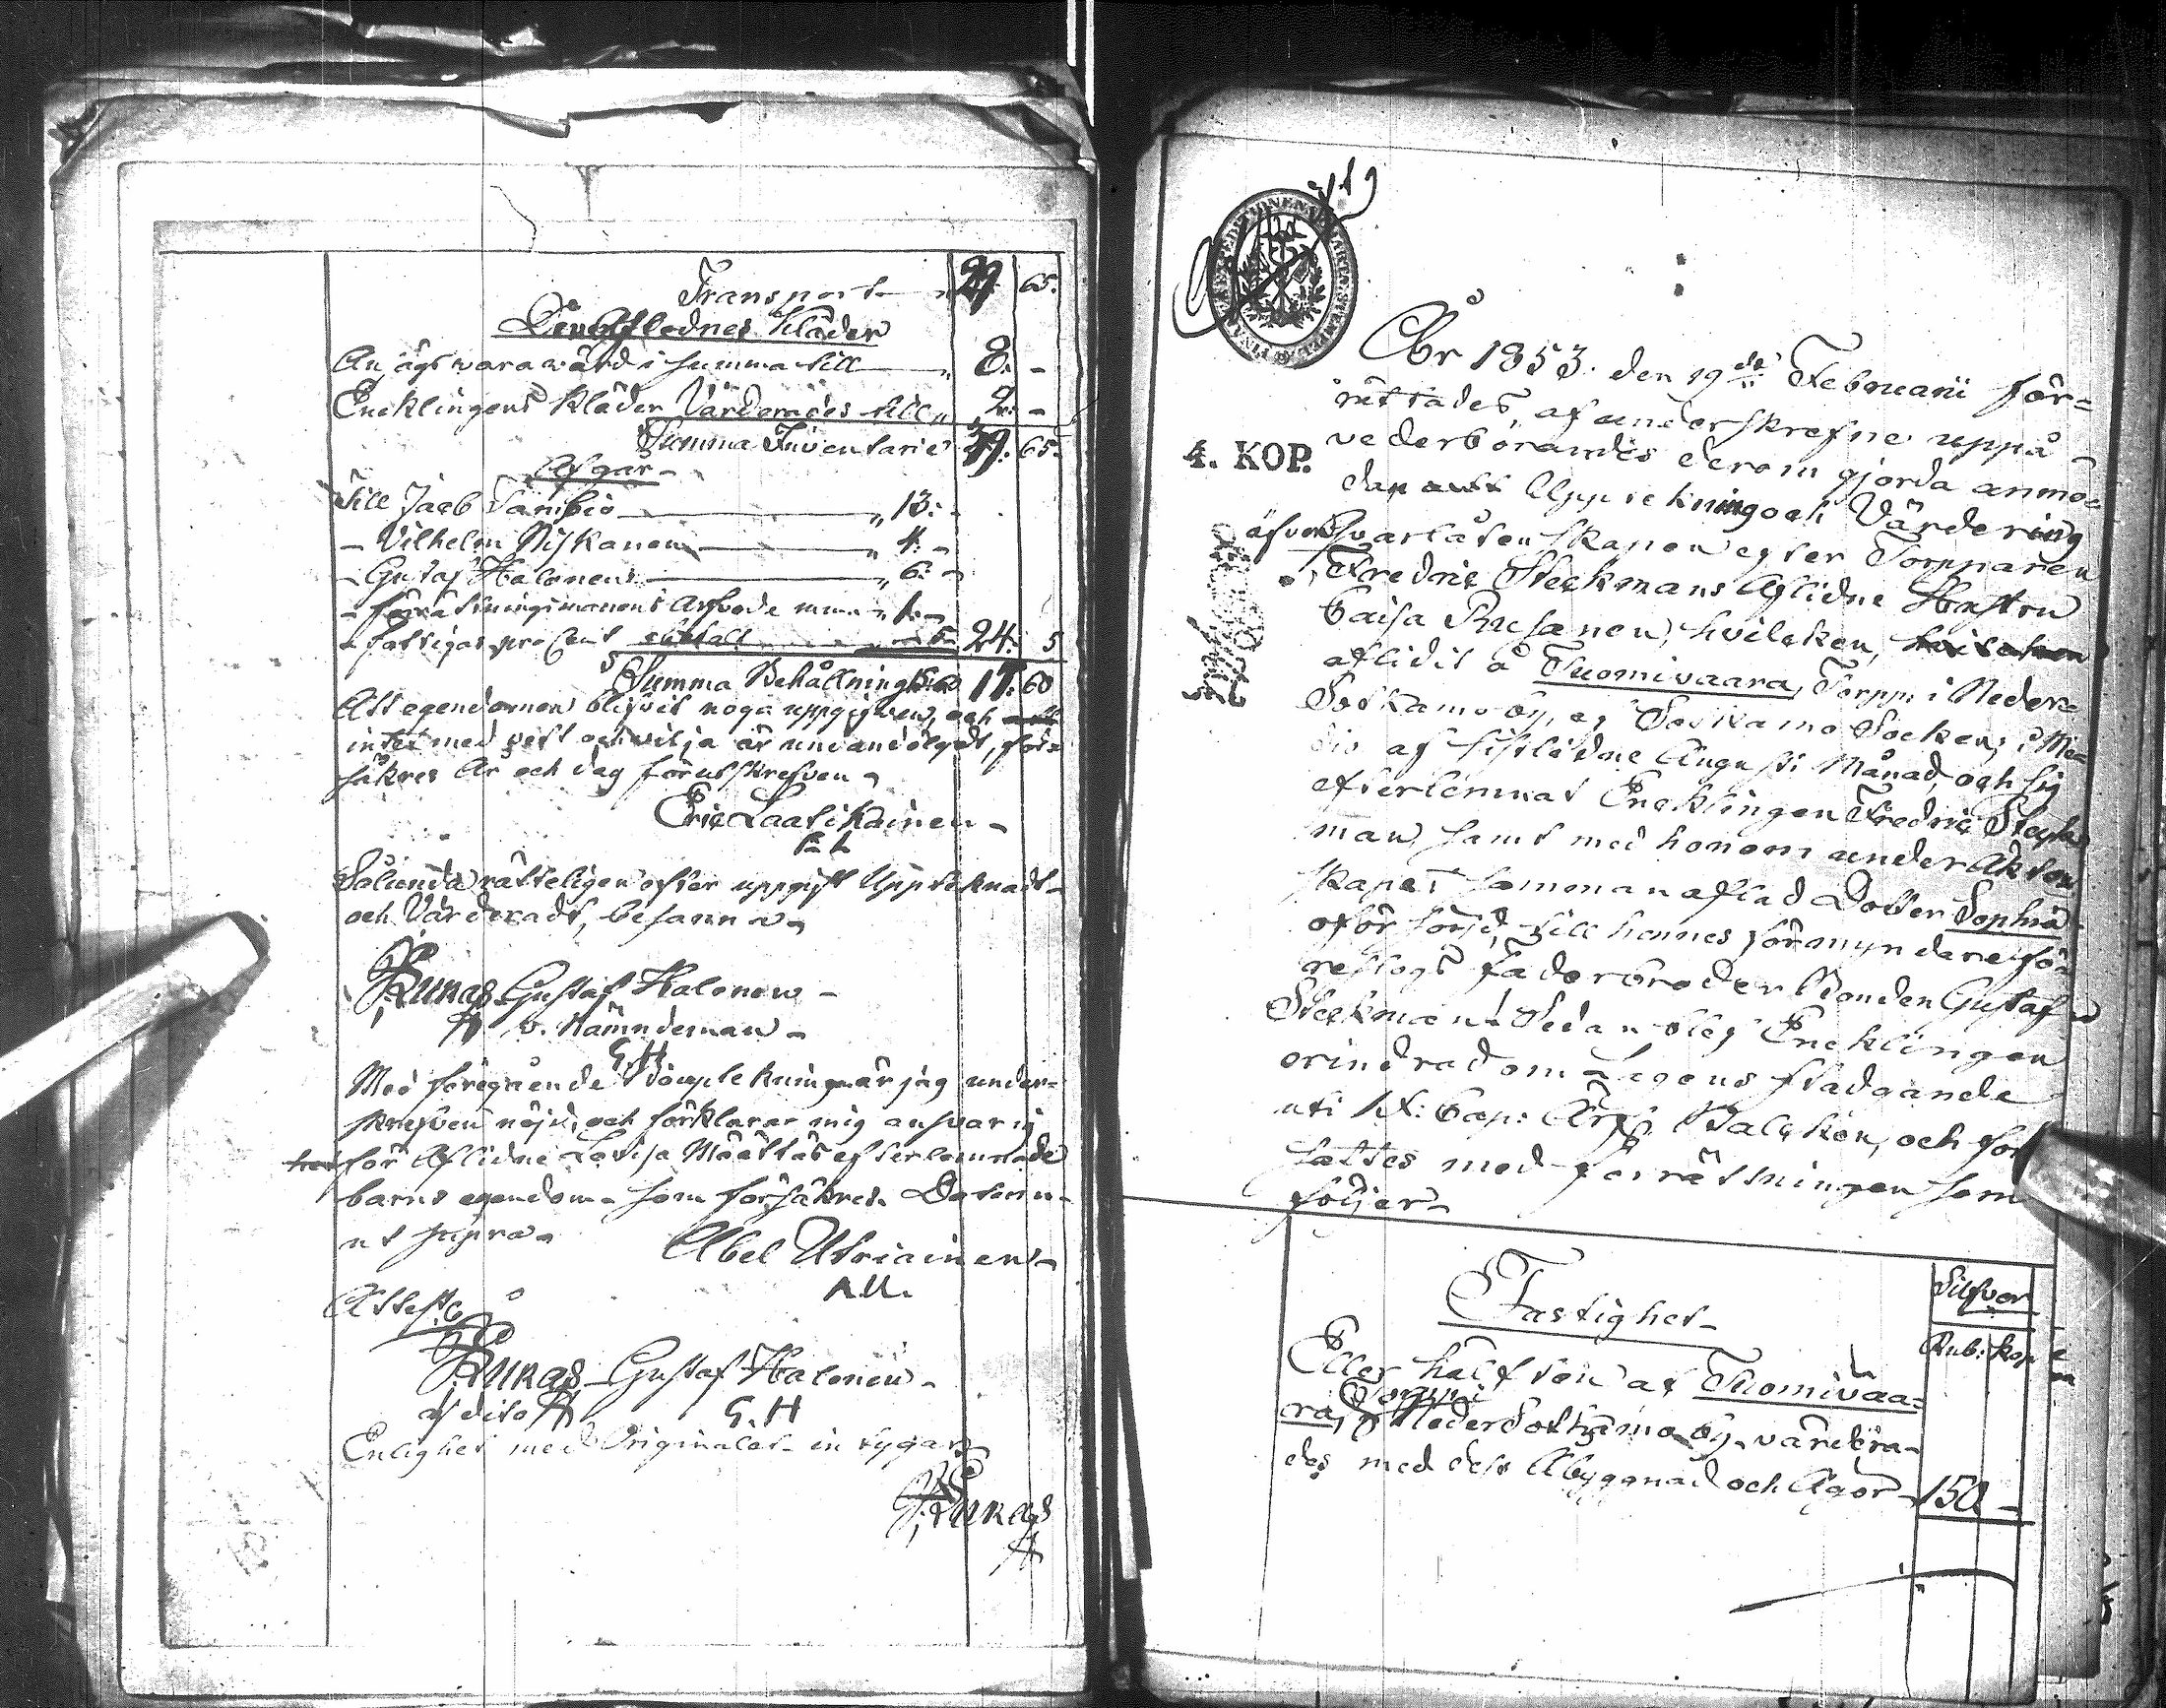 Transport " 29 65.
Den Aflednes Kläder
An ägt vara värd i summa till " 8. -
Encklingens kläder Värderades till " 2. -
Summa Inventarie 39. 65.
Afgår
Till Jacb " 13: -
- Vilhelm Niskanen " 4. -
- Gustaf Halonen " 6: -
- förrättningsmannens Arfvode " 1. -
- fattigas procent 5 24. 5
Summa Behållning 60
Att egendomen blifvit noga uppgifven, och
intet med vett och vilja är undandölgdt, för=
säkres År och dag förutskrefven
Eric Laatikainen
Sålunda rätteligen efter uppgift Upptecknadt
och Värderadt, besanna
Runas Gustaf Halonen
v. Nämndeman
G. H
Med föregående är jag under=
skrefven nöjd, och förklarar mig ansvarig
för Aflidne Lovisa Määttäs efterlemnade
barns egendom som försäkres. Datum
ut supra
Abel Utriainen
A.U.
Attest
Runas Gustaf Halonen
G. H
Enlighet med Originalet intygar
Runas
119
4. KOP.
År 1853. den 19de Februarii för=
rättades, af underskrefne uppå
vederbörandes derom gjorda anmo=
dan Uppteckning och Värdering
äfven qvarlåtenskapen efter Torpparen
Fredric Steckmans Aflidne Hustru
Caisa Rusanen, hvilcken,
aflidit å Tuomivaara, Torpp i Neder=
Sotkamo by, af Sotkamo Socken, i Me=
dio af sistlidne Augusti Månad, och sig
efterlemnat Encklingen Fredric Steck
man, samt med honom under Ackten
skapet sammanaflad Dotter Sophia
oförsörjd, till hennes förmyndare fö=
reslogs Faderbroder Bonden Gustaf
Steckman. Sedan blef Encklingen
erindrad om Lagens stadgande
uti IX: Cap: Ärf. Balcken, och fort
sattes med förrättningen som
följer
Fastighet
Silfver
Rub: Kop
Eller hälften af Tuomivaa=
ra, Torpp i Neder Sotkamo by. värdera=
des med dess Åbyggnad och Ägor 150 -